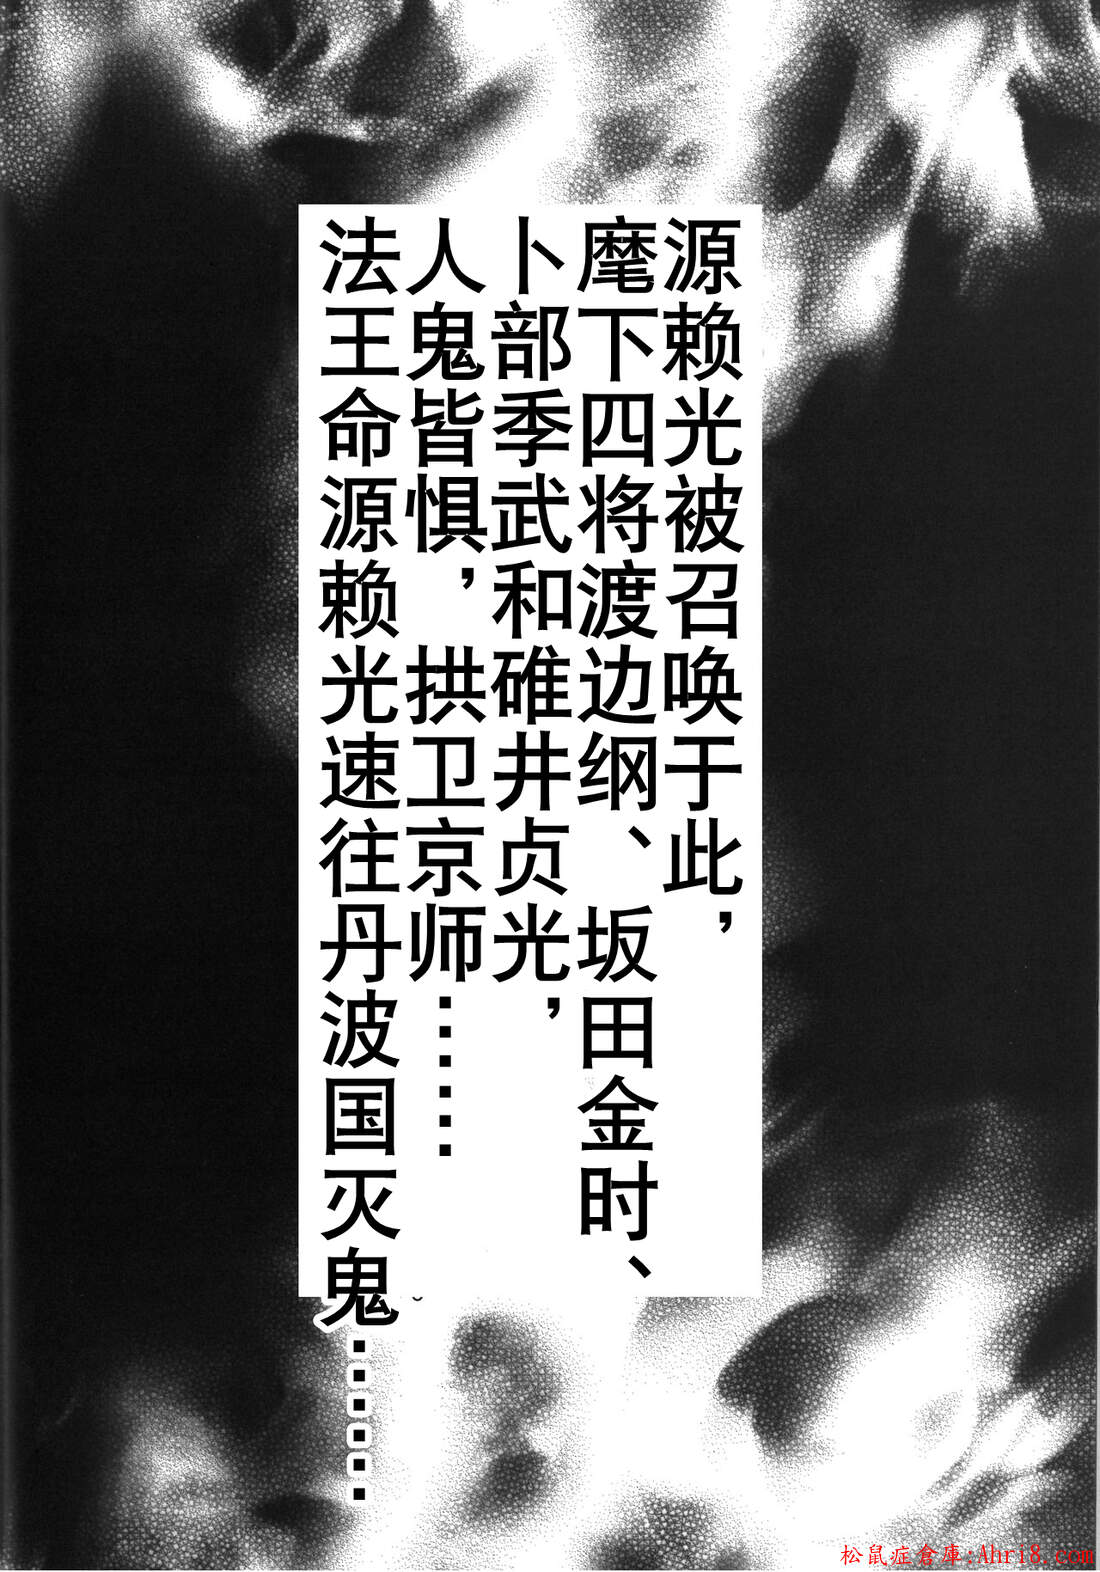 源赖光被召唤于此，
麾下四将渡边纲、坂田金时、
卜部季武和碓井贞光，
人鬼皆惧，拱卫京师……
法王命源赖光速往丹波国灭鬼……
松鼠症倉庫:Ahri8.com